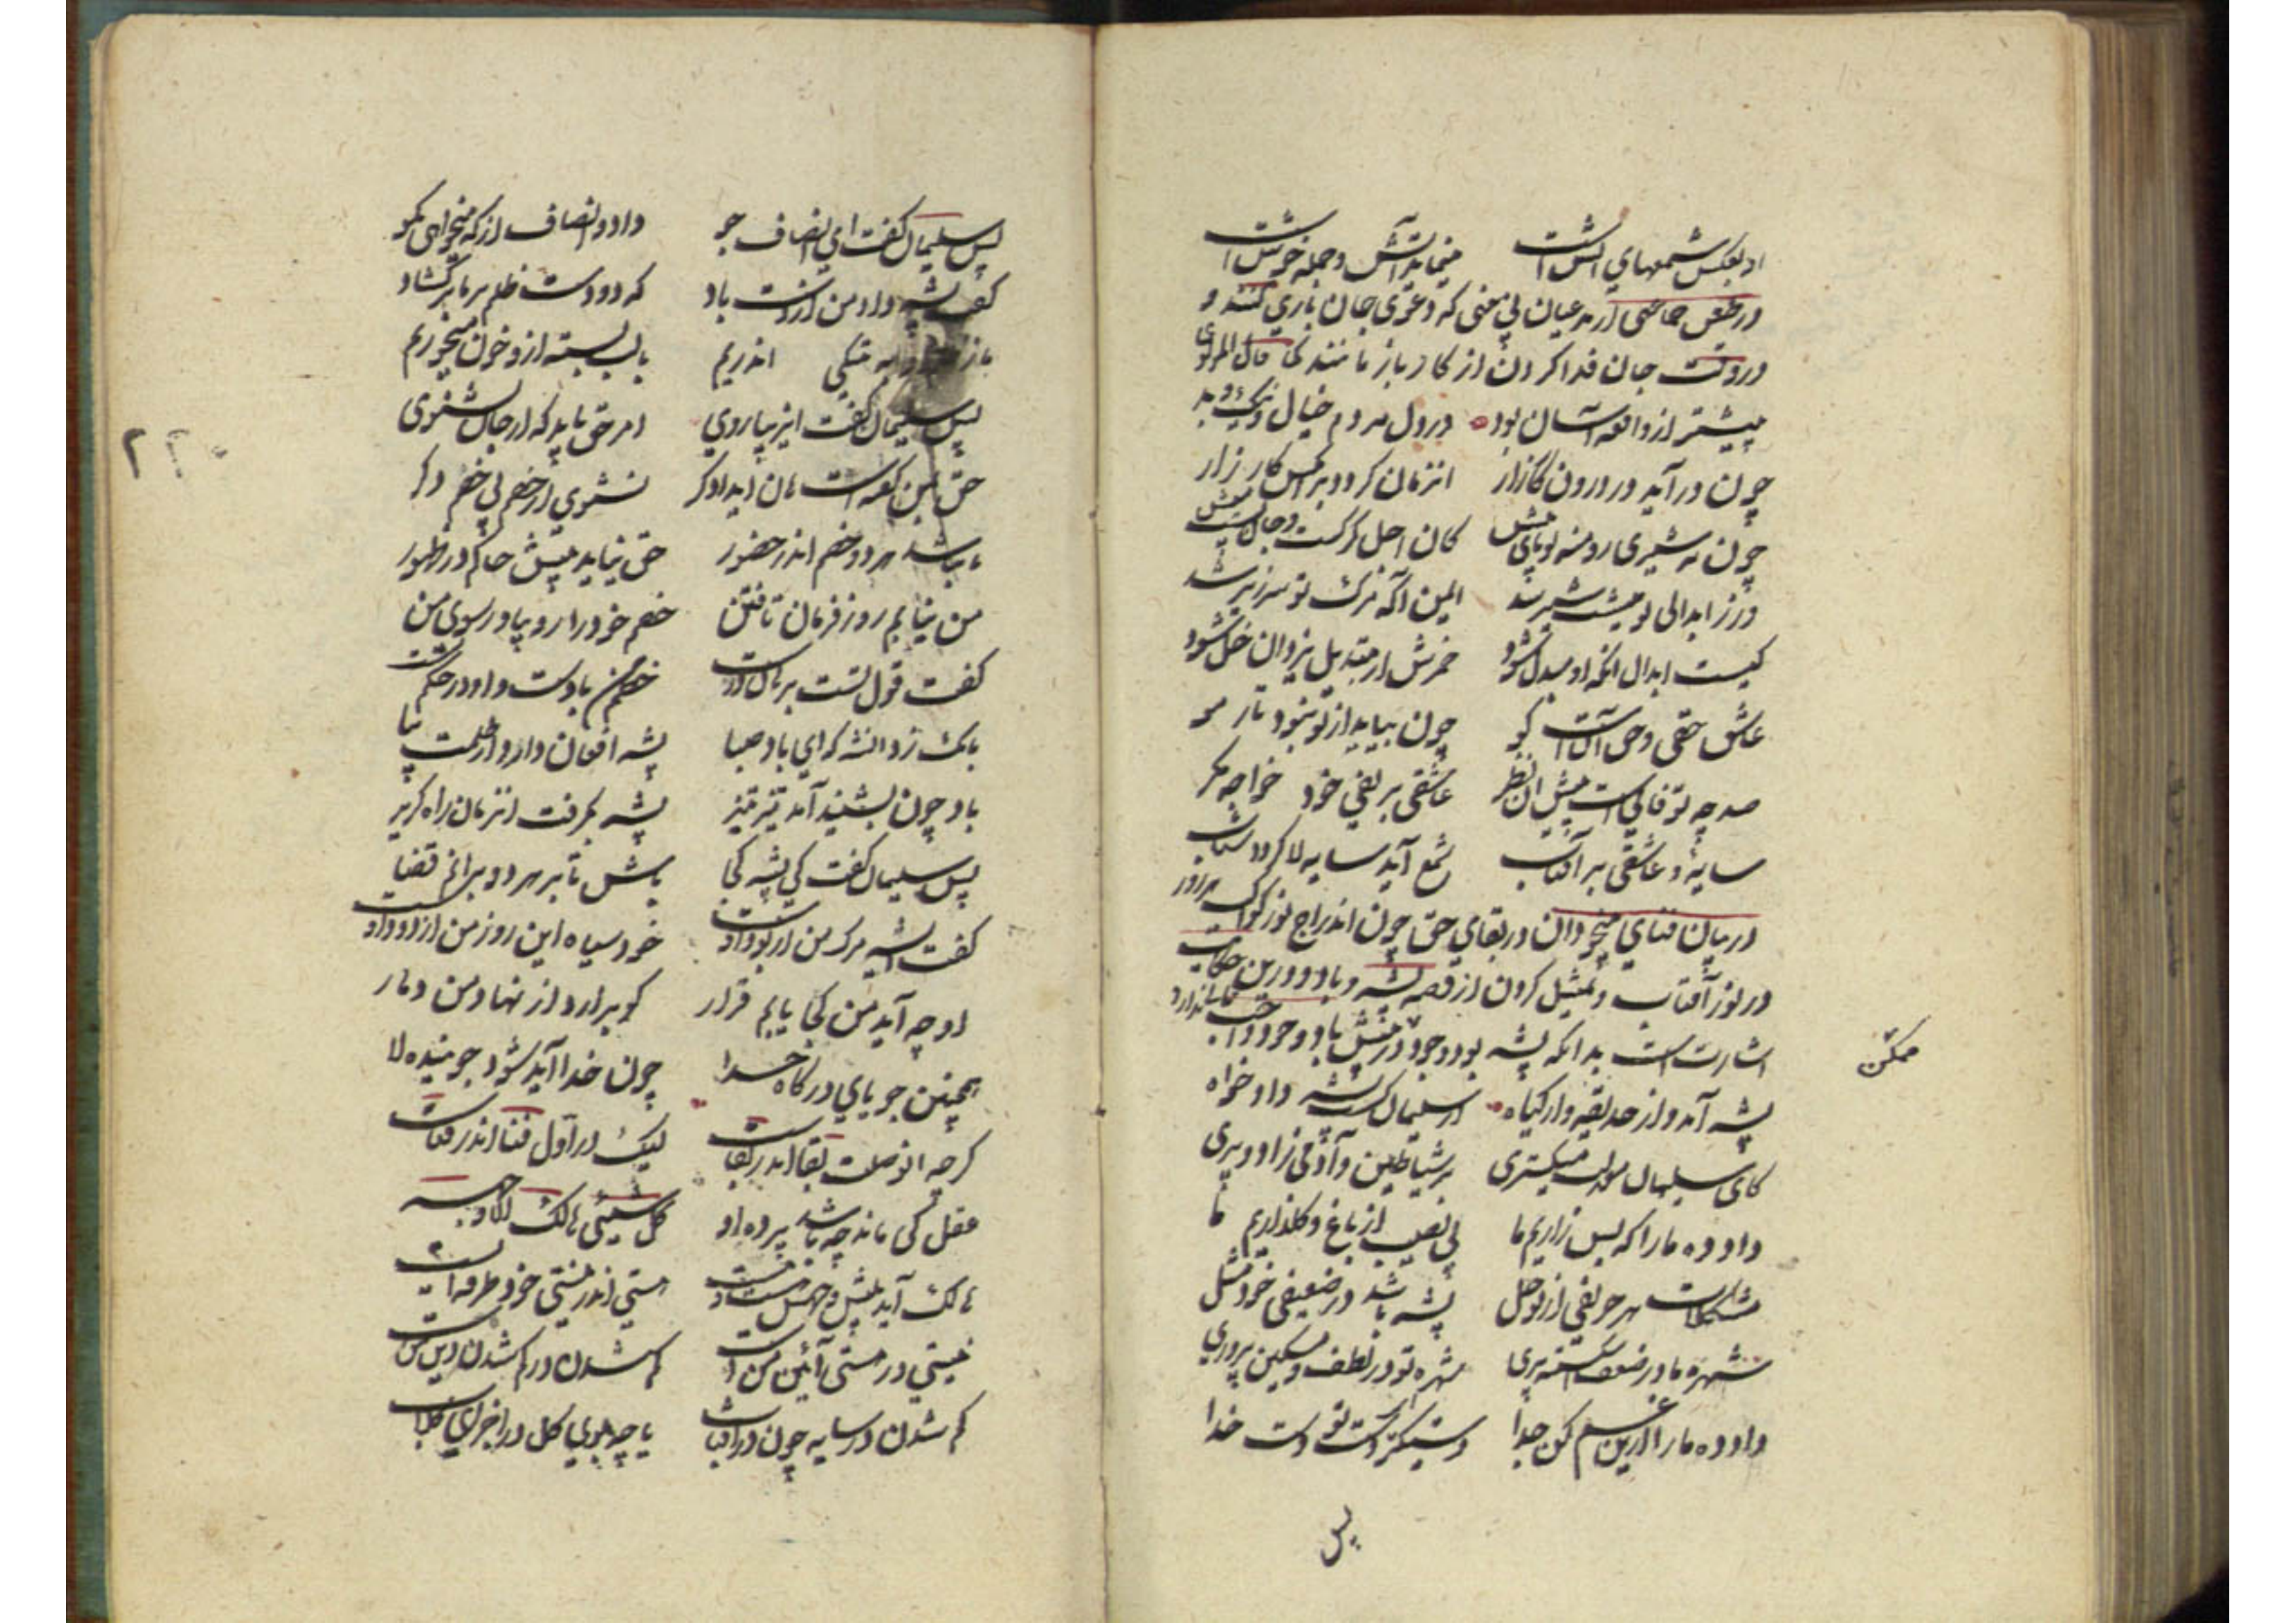 او بعکس شمعهای آتش است
مینماید آتش و جمله خوشی است
در طعن جماعتی از مدعیان بی معنی که دعوی جان بازی کنند و
در وقت جان فدا کردن از کار باز مانند کما قال المولوی
پیشتر از واقعه آسان بود در دل مردم خیال نیک و بد
چون در آید در درون کارزار انزمان کردد بر انکس کار زار
چون نه شیری رو منه تو پای پیش کان اجل کرکست و جان تست میش
ور ز ابدالی و میشت شیر شد ایمن آ که مرک تو سرزیر شد
کیست ابدال انکه او مبدل شود خمرش از تبدیل یزدان خل شود
عاشق حقی و حق آنست کو چون بیاید از تو نبود تار مو
صد چو تو فانی است پیش ان نظر عاشقی بر نفی خود خواجه مکر
سایه و عاشقی بر آفتاب شمع آید سایه لا کردد شتاب
در بیان فنای بیخودان در بقای حق چون اندراج نور کواکب
در نور آفتاب و تمثیل کردن از قصه پشه و باد و درین حکایت
اشارت است بدانکه پشه بود وجود در پیش باد وجود واجب
ممکن
پشه آمد از حدیقه وز کیاه از سلیمان کشت پشه داد خواه
کای سلیمان معدلت میکستری بر شیاطین و آدمی زاد و پری
داد ده ما را که بس زاریم ما بی نصیب از باغ و کلزاریم ما
مشکلات هر حریفی از تو حل پشه باشد در ضعیفی خود مثل
شهره ما در ضعف اشکسته پری شهره تو در لطف و مسکین پروری
داد ده ما را ازین غم کن جدا دستکیر دست تو دست خدا
پس
پس سلیمان کفت ای انصاف جو داد و انصاف از که میخواهی بکو
کفت پشه داد من از دست باد که دو دست ظلم بر ما بر کشاد
تنکی اندریم با لب بسته ازو خون میخوریم
پس سلیمان کفت ای زیبا روی امر حق باید که از جان بشنوی
حق بمن کفته است هان ای دادکر نشنوی از خصم بی خصم دکر
تا نباشد هر دو خصم اندر حضور حق نیاید پیش حاکم در ظهور
من نیابم روز فرمان تافتن خصم خود را رو بیاور سوی من
کفت قول تست برهان درست خصم من بادست و او در حکم تست
بانک زد آن شه که ای باد صبا پشه افغان دارد از ظلمت بیا
باد چون بشنید آمد تیز تیز پشه بکرفت انزمان راه کریز
پس سلیمان کفت کی پشه کجا باش تا بر هر دو برانم قضا
کفت ای شه مرک من از بود اوست خود سیاه این روز من از دود اوست
او چو آید من کجا یابم قرار کو برارد از نهاد من دمار
همچنین جویای درکاه خدا چون خدا آید شود جوینده لا
کرچه ان وصلت بقا اندر بقاست لیک در اول فنا اندر فناست
عقل کی ماند چو باشد پرده او کل شیئی هالک الا وجهه
هالک آید پیش وجهش هست و نیست هستی اندر نیستی خود طرفه ایست
نیستی در هستی آئین من است کم شدن در کم شدن دین من است
کم شدن در سایه چون در آفتاب یا چو بوی کل در اجزای کلاب